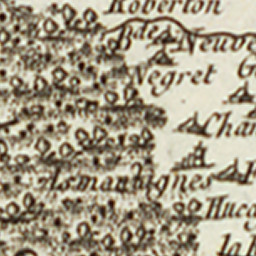 Roberton
B.de Neuve
Negret
Char
Asmanhignes
Huca
la